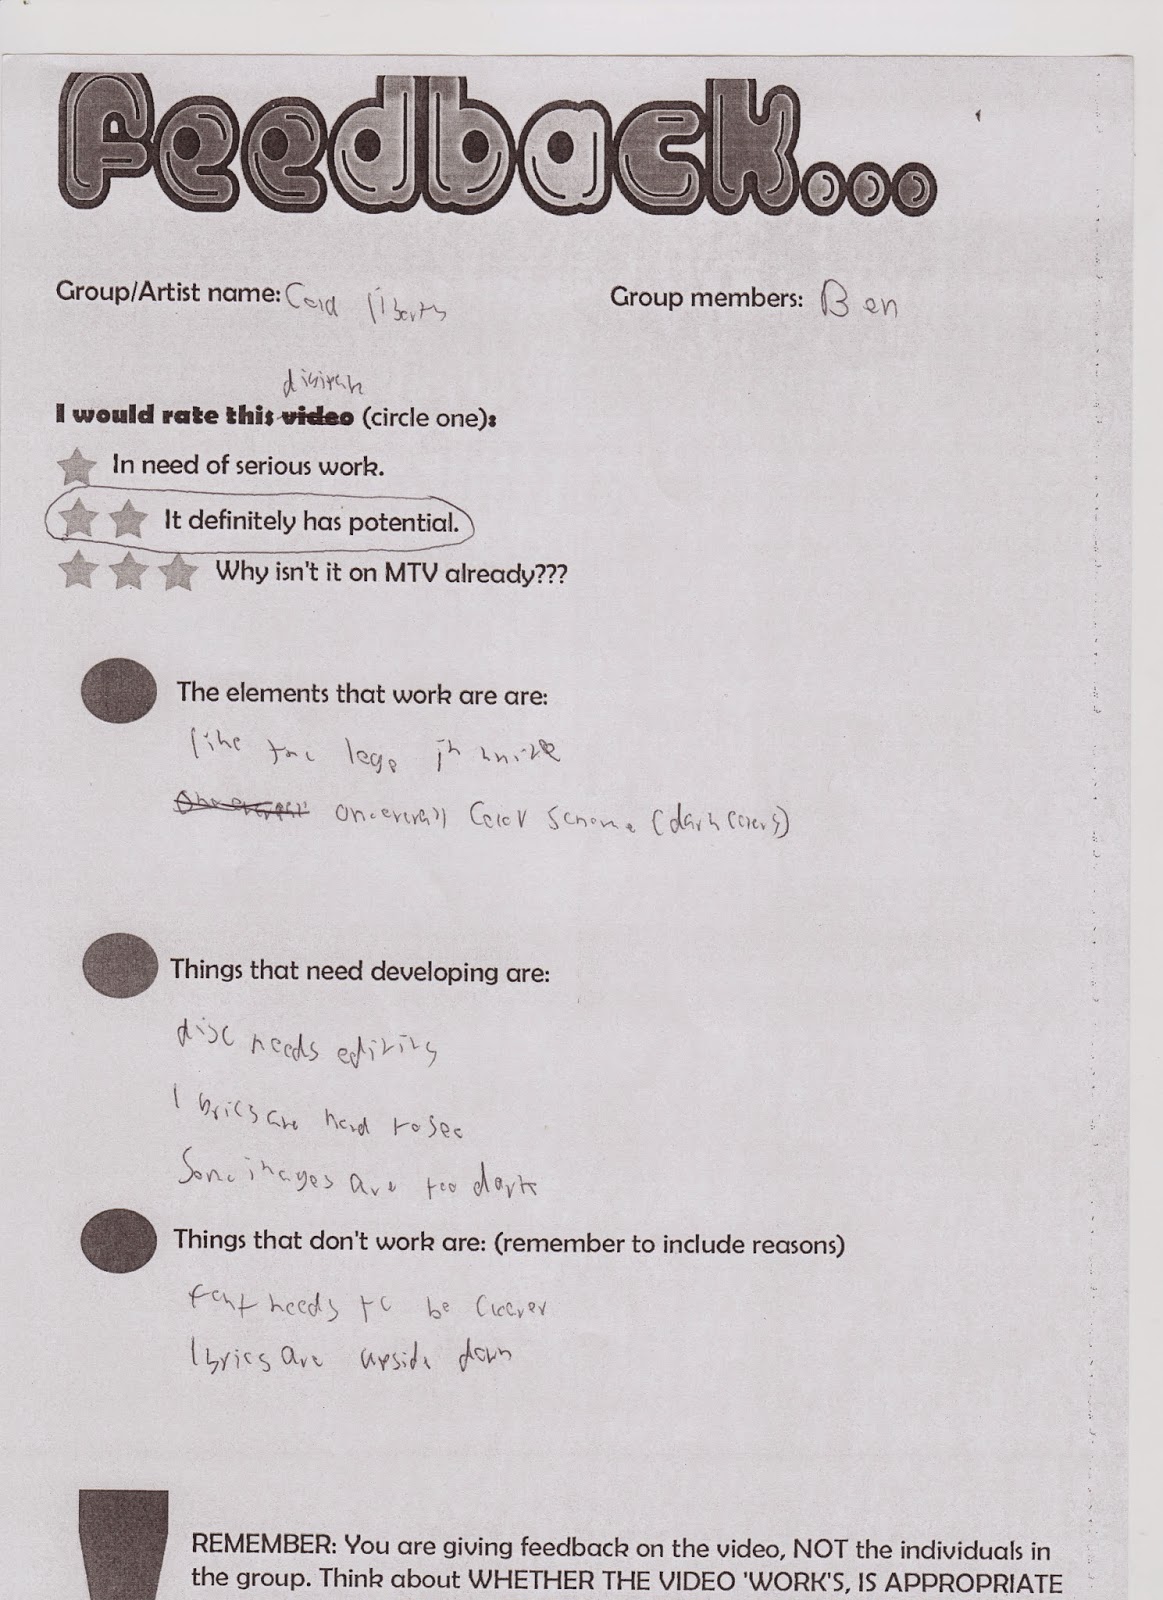 Feedback...
Group/Artist name: Cold liberty
Group members: Ben
digipak
I would rate this video (circle one):
In need of serious work.
It definitely has potential.
Why isn't it on MTV already???
The elements that work are are:
like the legs in
overall color scheme (dark colors)
Things that need developing are:
disc needs editing
lyrics are hard to see
Some images are too dark
Things that don't work are: (remember to include reasons)
font needs to be clearer
lyrics are upside down
REMEMBER: You are giving feedback on the video, NOT the individuals in
the group. Think about WHETHER THE VIDEO 'WORK'S, IS APPROPRIATE